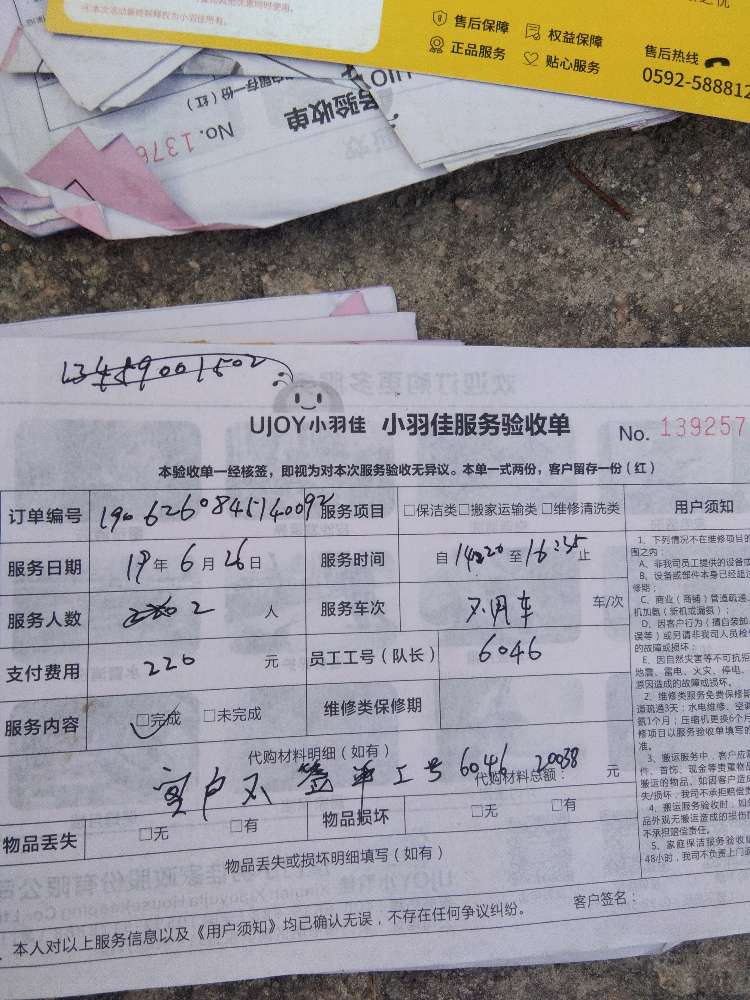 ※本次活动最终解释权为小羽佳所有。
售后保障 权益保障
正品服务 贴心服务
售后热线
0592-588812
UJOY
务验收单
户留存一份（红）
No. 1376
13459001502
UJOY小羽佳 小羽佳服务验收单 No. 139257
本验收单一经核签，即视为对本次服务验收无异议。本单一式两份，客户留存一份（红）
订单编号 1906260845140092 服务项目 □保洁类□搬家运输类□维修清洗类 用户须知
服务日期 19年6月26日 服务时间 自14:20至16:35止
服务人数 2 人 服务车次 不用车 车/次
支付费用 220 元 员工工号（队长） 6046
服务内容 □完成 □未完成 维修类保修期
代购材料明细（如有）
客户不签单工号6046 20038
代购材料总额： 元
物品丢失 □无 □有 物品损坏 □无 □有
物品丢失或损坏明细填写（如有）
本人对以上服务信息以及《用户须知》均已确认无误，不存在任何争议纠纷。 客户签名：
1、下列情况不在维修项目的
围之内：
A、非我司员工提供的设备或
B、设备或部件本身已经超过
修期；
C、商业（商铺）管道疏通、
机加氨（新机或漏氨）；
D、因客户行为（擅自装卸、
误等）或另请非我司人员检修
的故障或损坏；
E、因自然灾害等不可抗拒
地震、雷电、火灾、停电、
原因造成的故障或损坏。
2、维修类服务免费保修期
道疏通3天；水电维修、空调
氨1个月；压缩机更换6个月
修项目以服务验收单填写的
准。
3、搬运服务中，客户应
件、首饰、现金等贵重物品
搬运的物品。如因客户造成
失/损坏，我司不承担赔偿责
4、搬运服务验收时，如
品外观无搬运造成的损伤
不承担赔偿责任。
5、家庭保洁服务验收
48小时，我司不负责上门